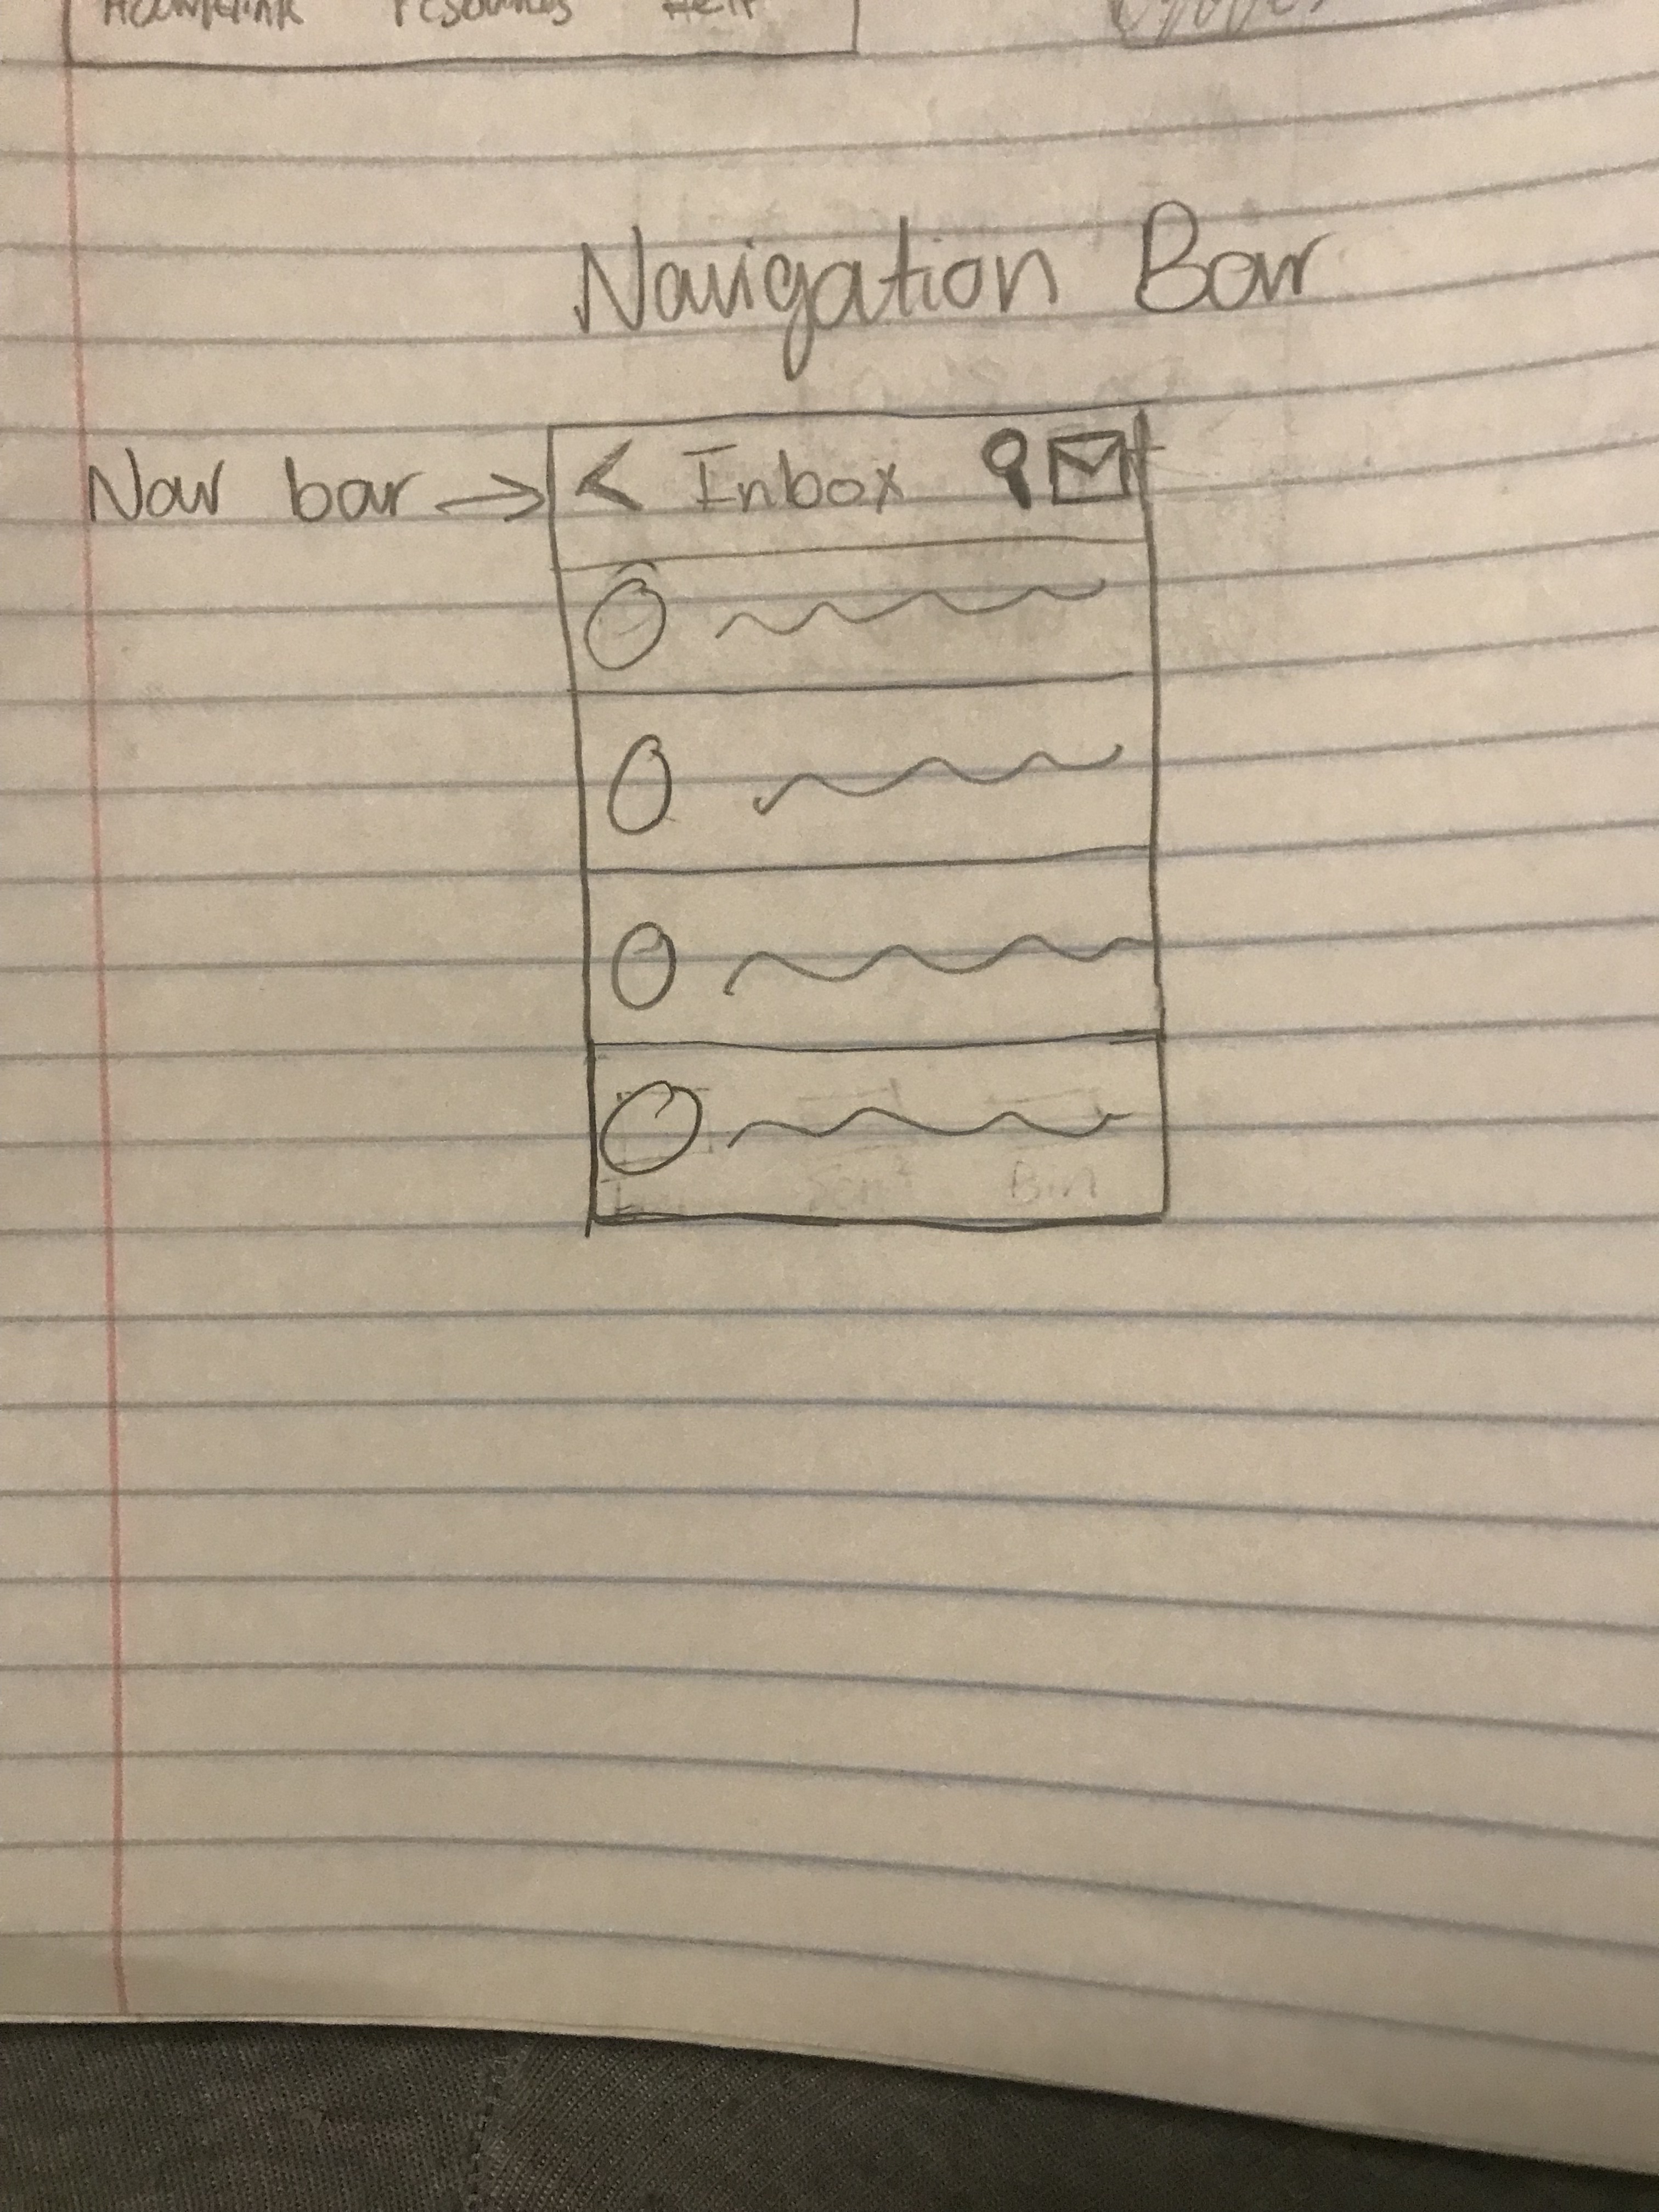 resources Help
Navigation Bar
Nav bar → < Inbox
Sent Bin